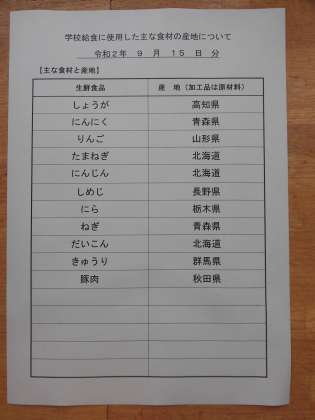 学校給食に使用した主な食材の産地について
令和２年 ９ 月 １５ 日 分
【主な食材と産地】
生鮮食品 産 地（加工品は原材料）
しょうが 高知県
にんにく 青森県
りんご 山形県
たまねぎ 北海道
にんじん 北海道
しめじ 長野県
にら 栃木県
ねぎ 青森県
だいこん 北海道
きゅうり 群馬県
豚肉 秋田県